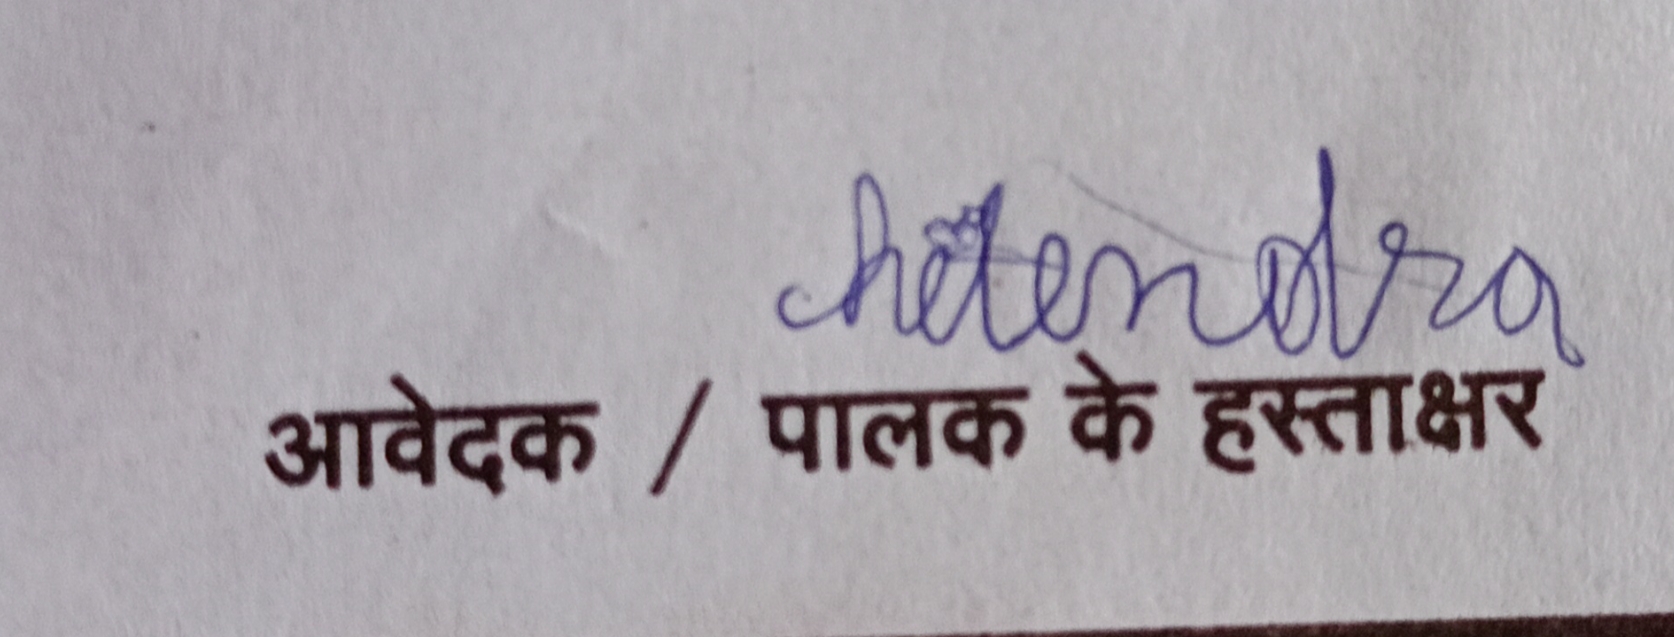 hetendra
आवेदक / पालक के हस्ताक्षर